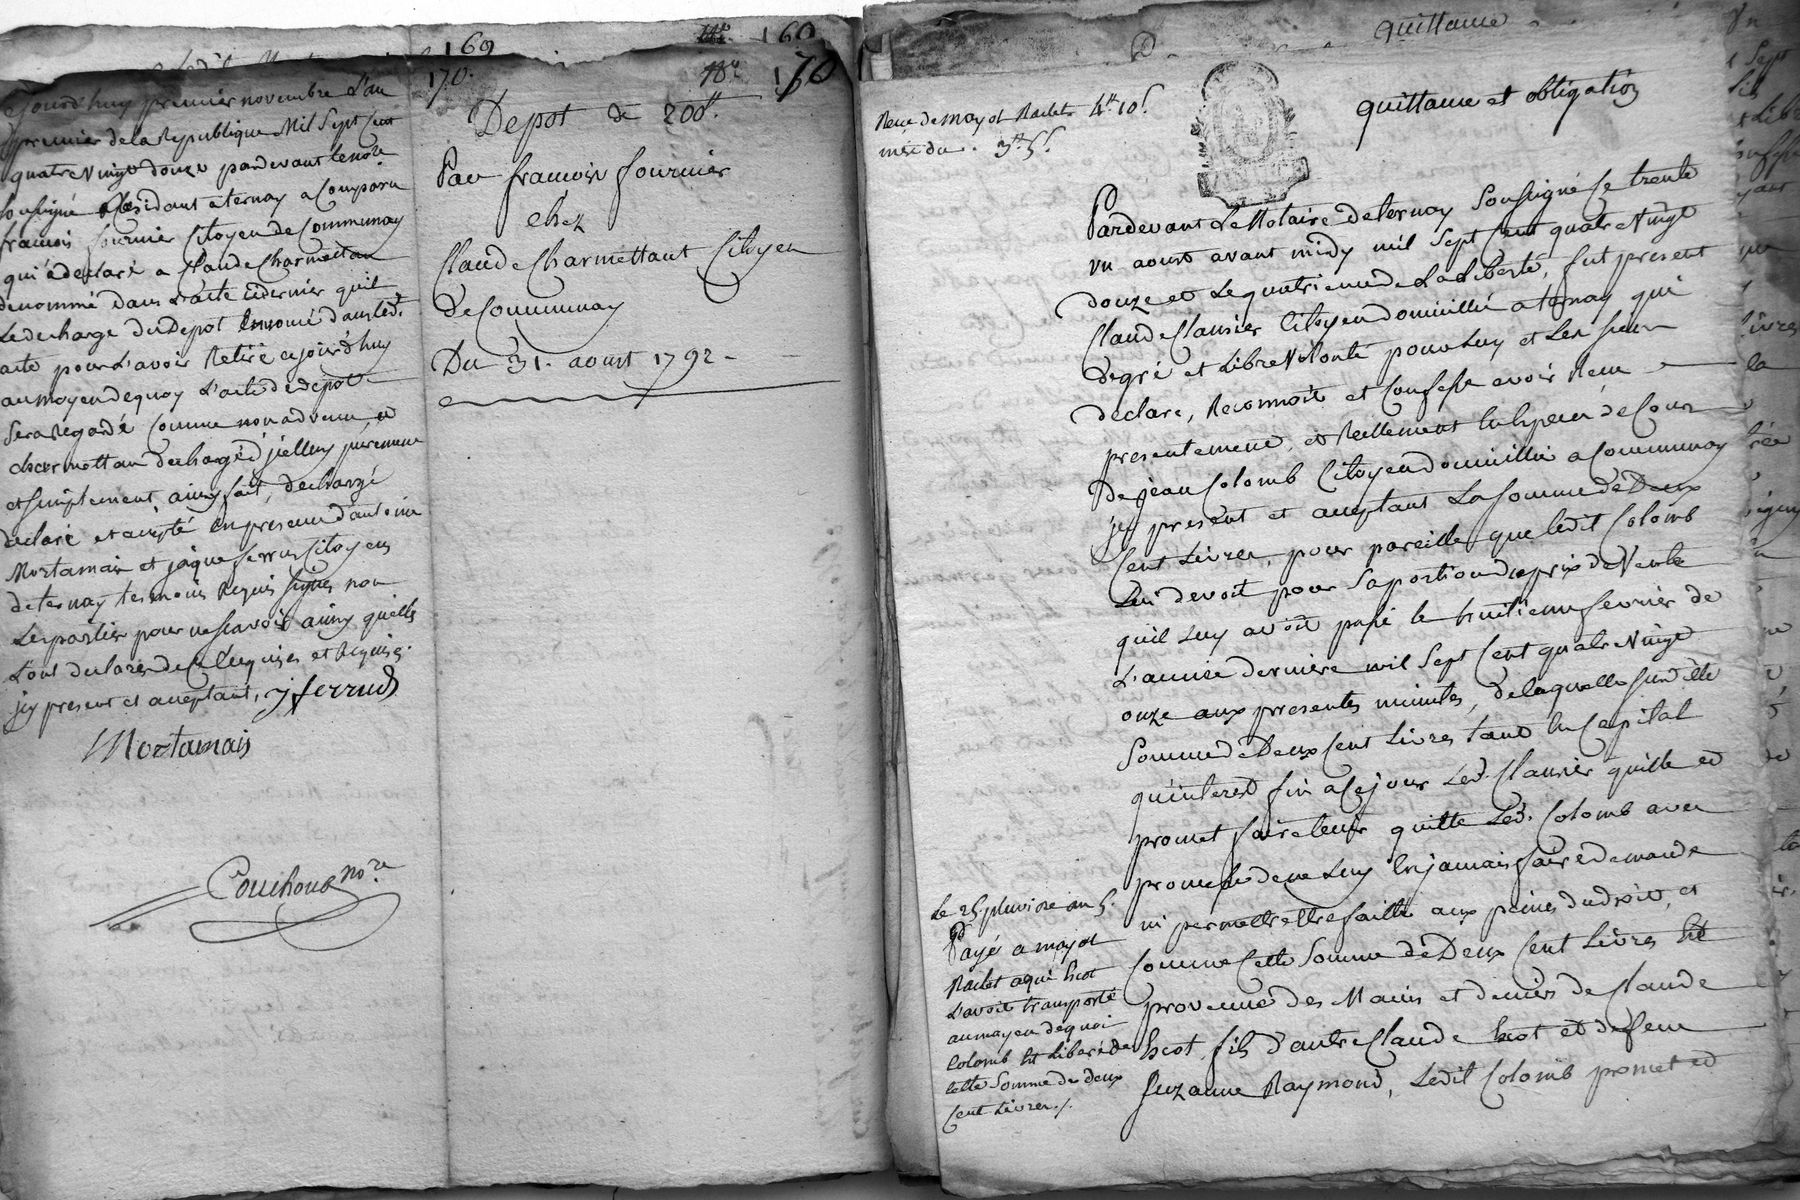 169
160
170.
N.o 170
ajourd'huy premier novembre L'an
premier de la Republique Mil Sept Cent
quatre Vingt douze pardevant Le no.re
Soussigné Résidant a ternay a Comparu
francois fournier Citoyen de Communay
qui a declaré a Claude Charmettan
denommé dans L'acte Cy dernier quil
Le decharge du Depot Ennoncé dans led.
acte pour L'avoir Retiré cejourd'huy
au moyen de quoy L'acte de depot
Sera Regardé Comme non advenu, et
charmettan dechargé d'jcelluy purement
et simplement, ainsy fait, dechargé
declaré et accepté En presence d'antoine
Mortamais et jaque ferrus Citoyens
de ternay temoins Requis signés non
Les parties pour ne scavoir ainsy quelles
L'ont declaré de Ce Enquises et Requises.
jcy present et acceptant, j ferrus
Mortamais
Couchoud no.re
Depot de 200.tt
Par francois fournier
chez
Claude Charmettant Citoyen
de Communay
Du 31. aoust 1792 -
quittance
quittance et obligation
Receu de mayot Rachet 4.tt 10.s
3.tt 5.s
Pardevant Le Notaire de ternay Soussigné Ce trente
un aoust avant midy mil Sept Cent quatre Vingt
douze et Le quatrieme de La Liberté, fut present
Claude Clausier Citoyen domicillié a ternay qui
de gré et Libre Volonté pour Luy et Les Siens
declare, Reconnoit et Confesse avoir Receu
presentement, et Reellement En Espece de Cour
de jean Colomb Citoyen domicillié a Communay
jcy present et acceptant La Somme de Deux
Cent Livres, pour pareille que ledit Colomb
Lui devoit pour Sa portion du prix de Vente
quil Luy avoit passé le huitieme fevrier de
L'année derniere mil Sept Cent quatre Vingt
onze aux presentes minutes, de laquelle susditte
Somme de Deux Cent Livres tant En Capital
qu'interest fin a Ce jour Led. Clausier quitte et
promet faire tenir quitte Led. Colomb avec
promesse de ne Luy En jamais faire demande
ni permettre Etre faitte aux peines du droit, et
Comme Cette Somme de Deux Cent Livres Est
provenue des Mains et deniers de Claude
hcot, fils d'autre Claude hcot et de feue
Suzanne Raymond, Ledit Colomb promet et
Le 25 pluviose an 5.
Payé a mayot
Rachet a qui hcot
L'avoit transporté
au moyen de quoi
Colomb Est Liberé de
Cette Somme de deux
Cent Livres ./.